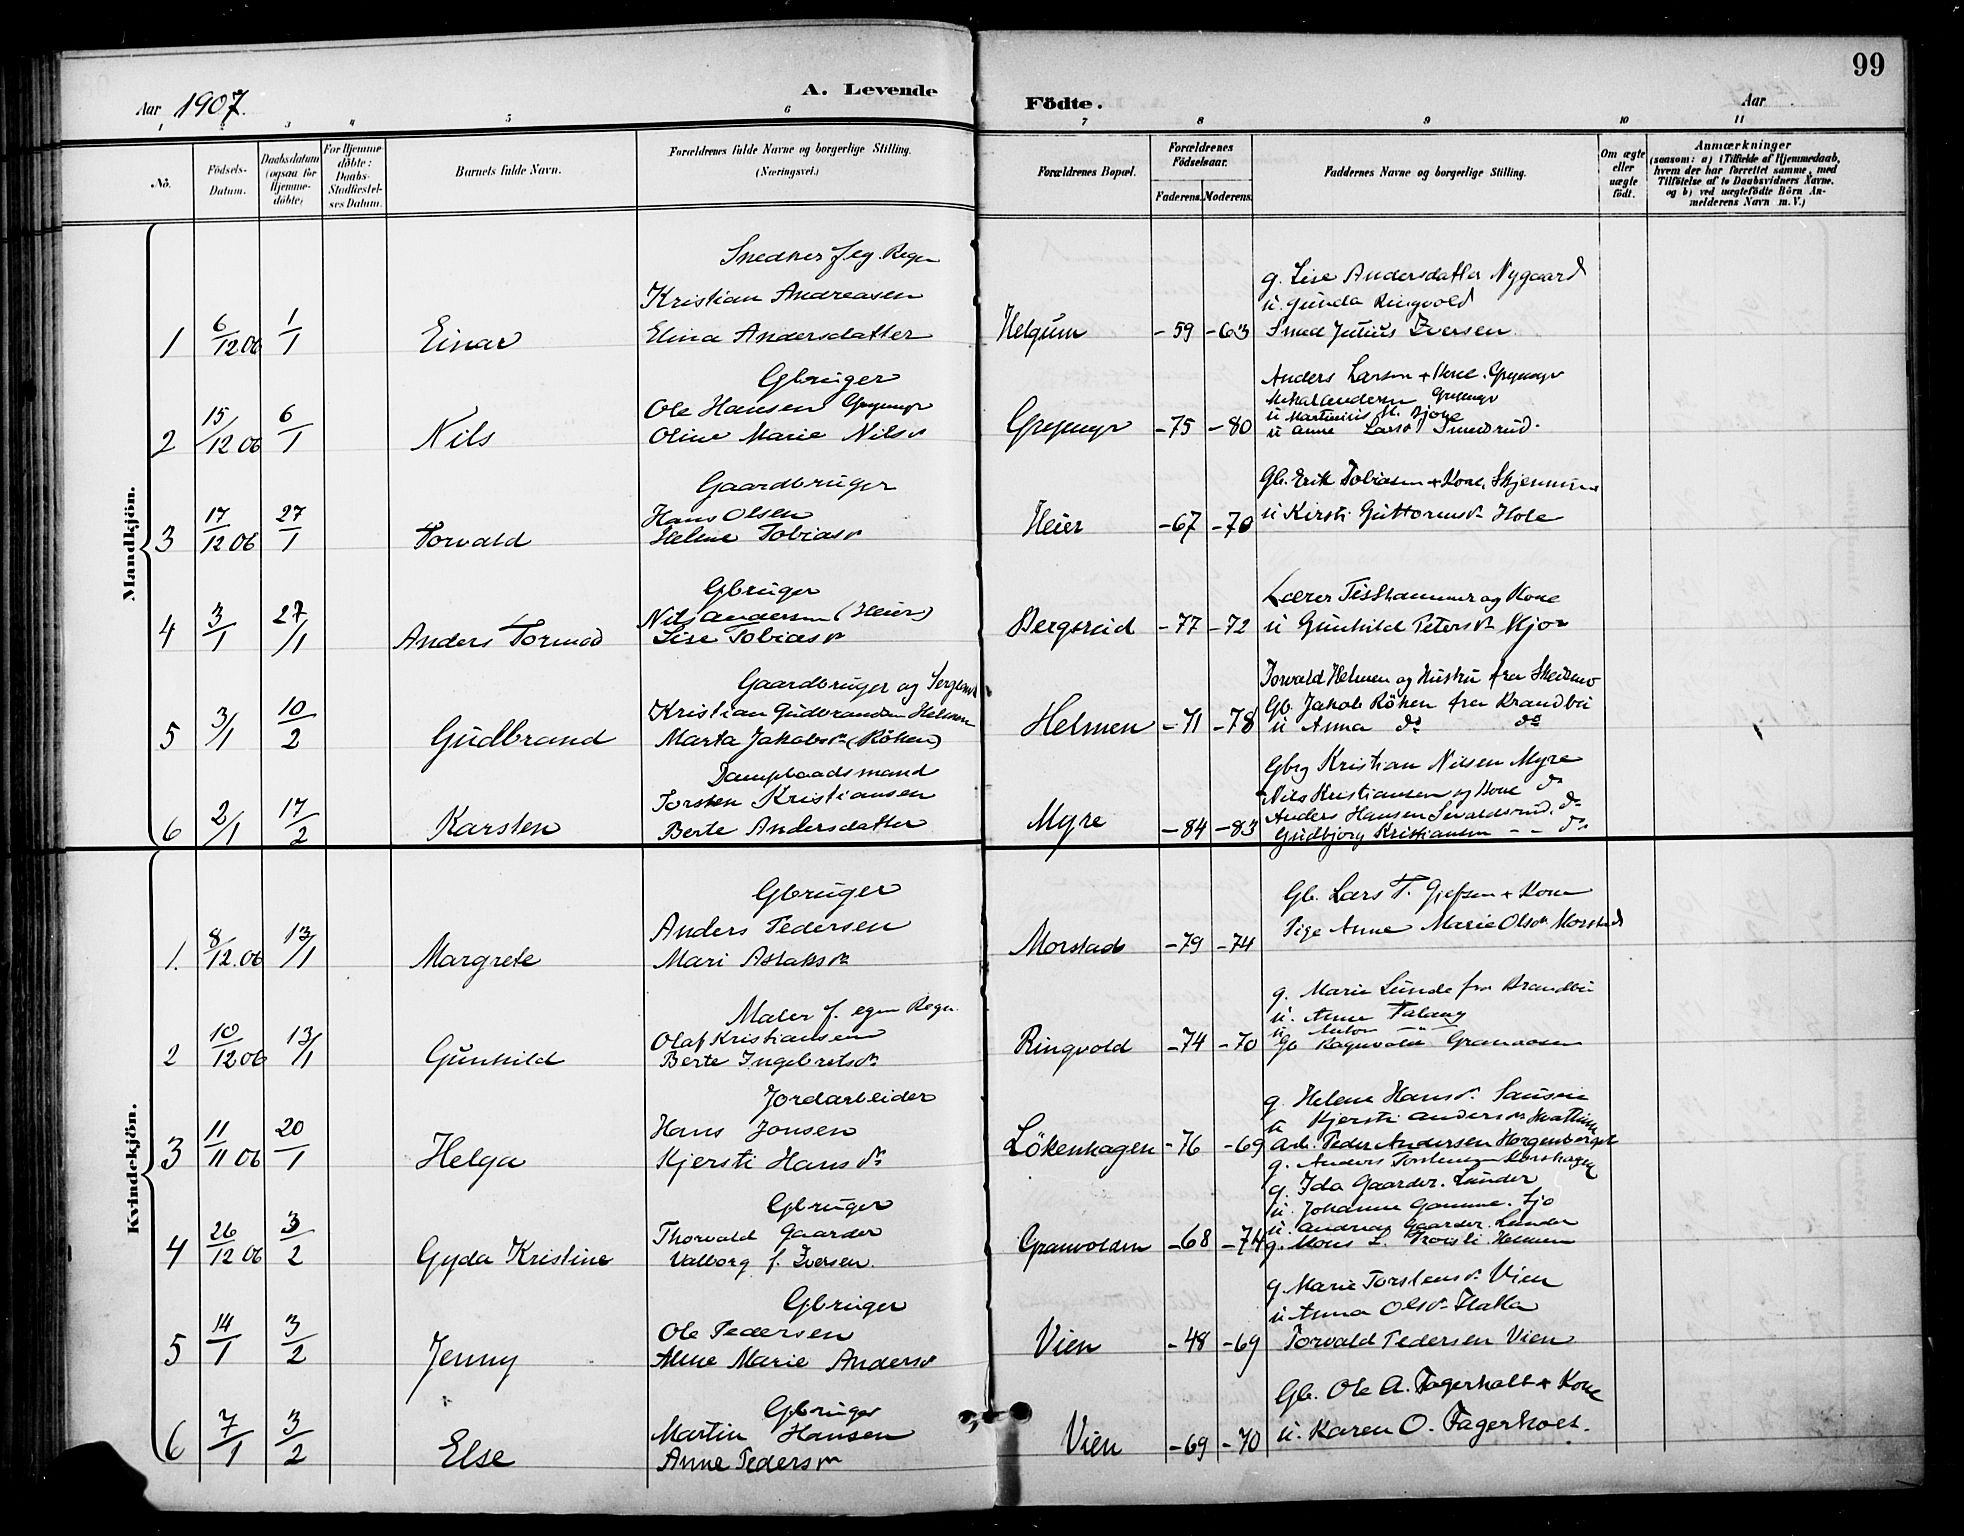 99
Aar 1907.
A. Levende Födte.
Aar
1 2 3 4 5 6 7 8 9 10 11
No.
Födsels-Datum.
Daabsdatum (ogsaa for Hjemme-döbte)
For Hjemme-döbte: Daabs-Stadfæstel-ses Datum.
Barnets fulde Navn.
Forældrenes fulde Navne og borgerlige Stilling. (Næringsvei.)
Forældrenes Bopæl.
Forældrenes Födselsaar.
Faderens. Moderens.
Faddernes Navne og borgerlige Stilling.
Om ægte eller uægte födt.
Anmærkninger
(saasom: a) i Tilfælde af Hjemmedaab, hvem der har forrettet samme, med Tilföielse af to Daabsvidners Navne, og b) ved uægtefödte Börn An-melderens Navn m. V.)
Mandkjön.
Snedker f. eg. Regn
Kristian Andreasen
1 6/12 06 1/1 Einar Elina Andersdatter Helgum -59 -63
g. Lise Andersdatter Nygaard
u. Gunda Ringvold
Smed Julius Iversen
Gbruger
Ole Hansen
2 15/12 06 6/1 Nils Oline Marie Nilsd. -75 -80
Anders Larsen + Kone
u Anne Larsd. Smedsrud.
Gaardbruger
Hans Olsen
3 17/12 06 27/1 Torvald Helene Tobiasd. Heier -67 -70
Gb. Erik Tobiasen + Kone,
u Kirsti Guttormsd. Hole
Gbruger
Nils Andersen (Heier)
4 3/1 27/1 Anders Tormod Lise Tobiasd. Bergsreid -77 -72
Lærer og Kone
u Gunhild Petersd.
Gaardbruger og
Kristian Gudbrandsen Helmen
5 3/1 10/2 Gudbrand Marta Jakobsd. (Röken) Helmen -71 -78
Torvald Helmen og Hustru fra
Gb. Jakob Röken fra Brandbu
u Anna do do
Dampbaadsmand
Torsten Kristiansen
6 2/1 17/2 Karsten Berte Andersdatter Myre -84 -83
Gbrg Kristian Nilsen Myre
Nils Kristiansen og Kone do
Anders Hansen do
Gudbjörg Kristiansen - - do
Kvindekjön.
Gbruger
Anders Pedersen
1. 8/12.06 13/1 Margrete Mari Aslaksd. Morstad -79 -74
Gb. Lars T. Gjefsen + Kone
Pige Anne Marie Olsd. Morstad
Maler f. egen Regn.
Olaf Kristiansen
2 10/12 06 13/1 Gunhild Berte Ingebretsd. Ringvold -74 -70
g. Marie Lunde fra Brandbu
u. Anne Falang
u Anton
Jordarbeider
Hans Jonsen
3 11/11 06 20/1 Helga Kjersti Hansd. Lökenhagen -76 -69
g. Helene Hansd.
u Kjersti Andersd.
Arb. Peder Andersen
g. Anders Torstensen
Gbruger
Thorvald Gaarder
4 26/12 06 3/2 Gyda Kristine Valborg f. Iversen. Granvolden -68 -74
g. Ida Gaarder. Lunder
u. Johanne Gamme.
u. Andreas Gaarder. Lunder
g. Mons L.
Gbruger
Ole Pedersen
5 14/1 3/2 Jenny Anne Marie Andersd. Vien -48 -69
g. Marie Torstensd. Vien
u. Anna Olsd.
Torvald Pedersen Vien
Gbruger
Martin Hansen
6 7/1 3/2 Else Anne Pedersd. Vien -69 -70
Gb. Ole A. Fagerholt + Kone
u. Karen O. Fagerholt.